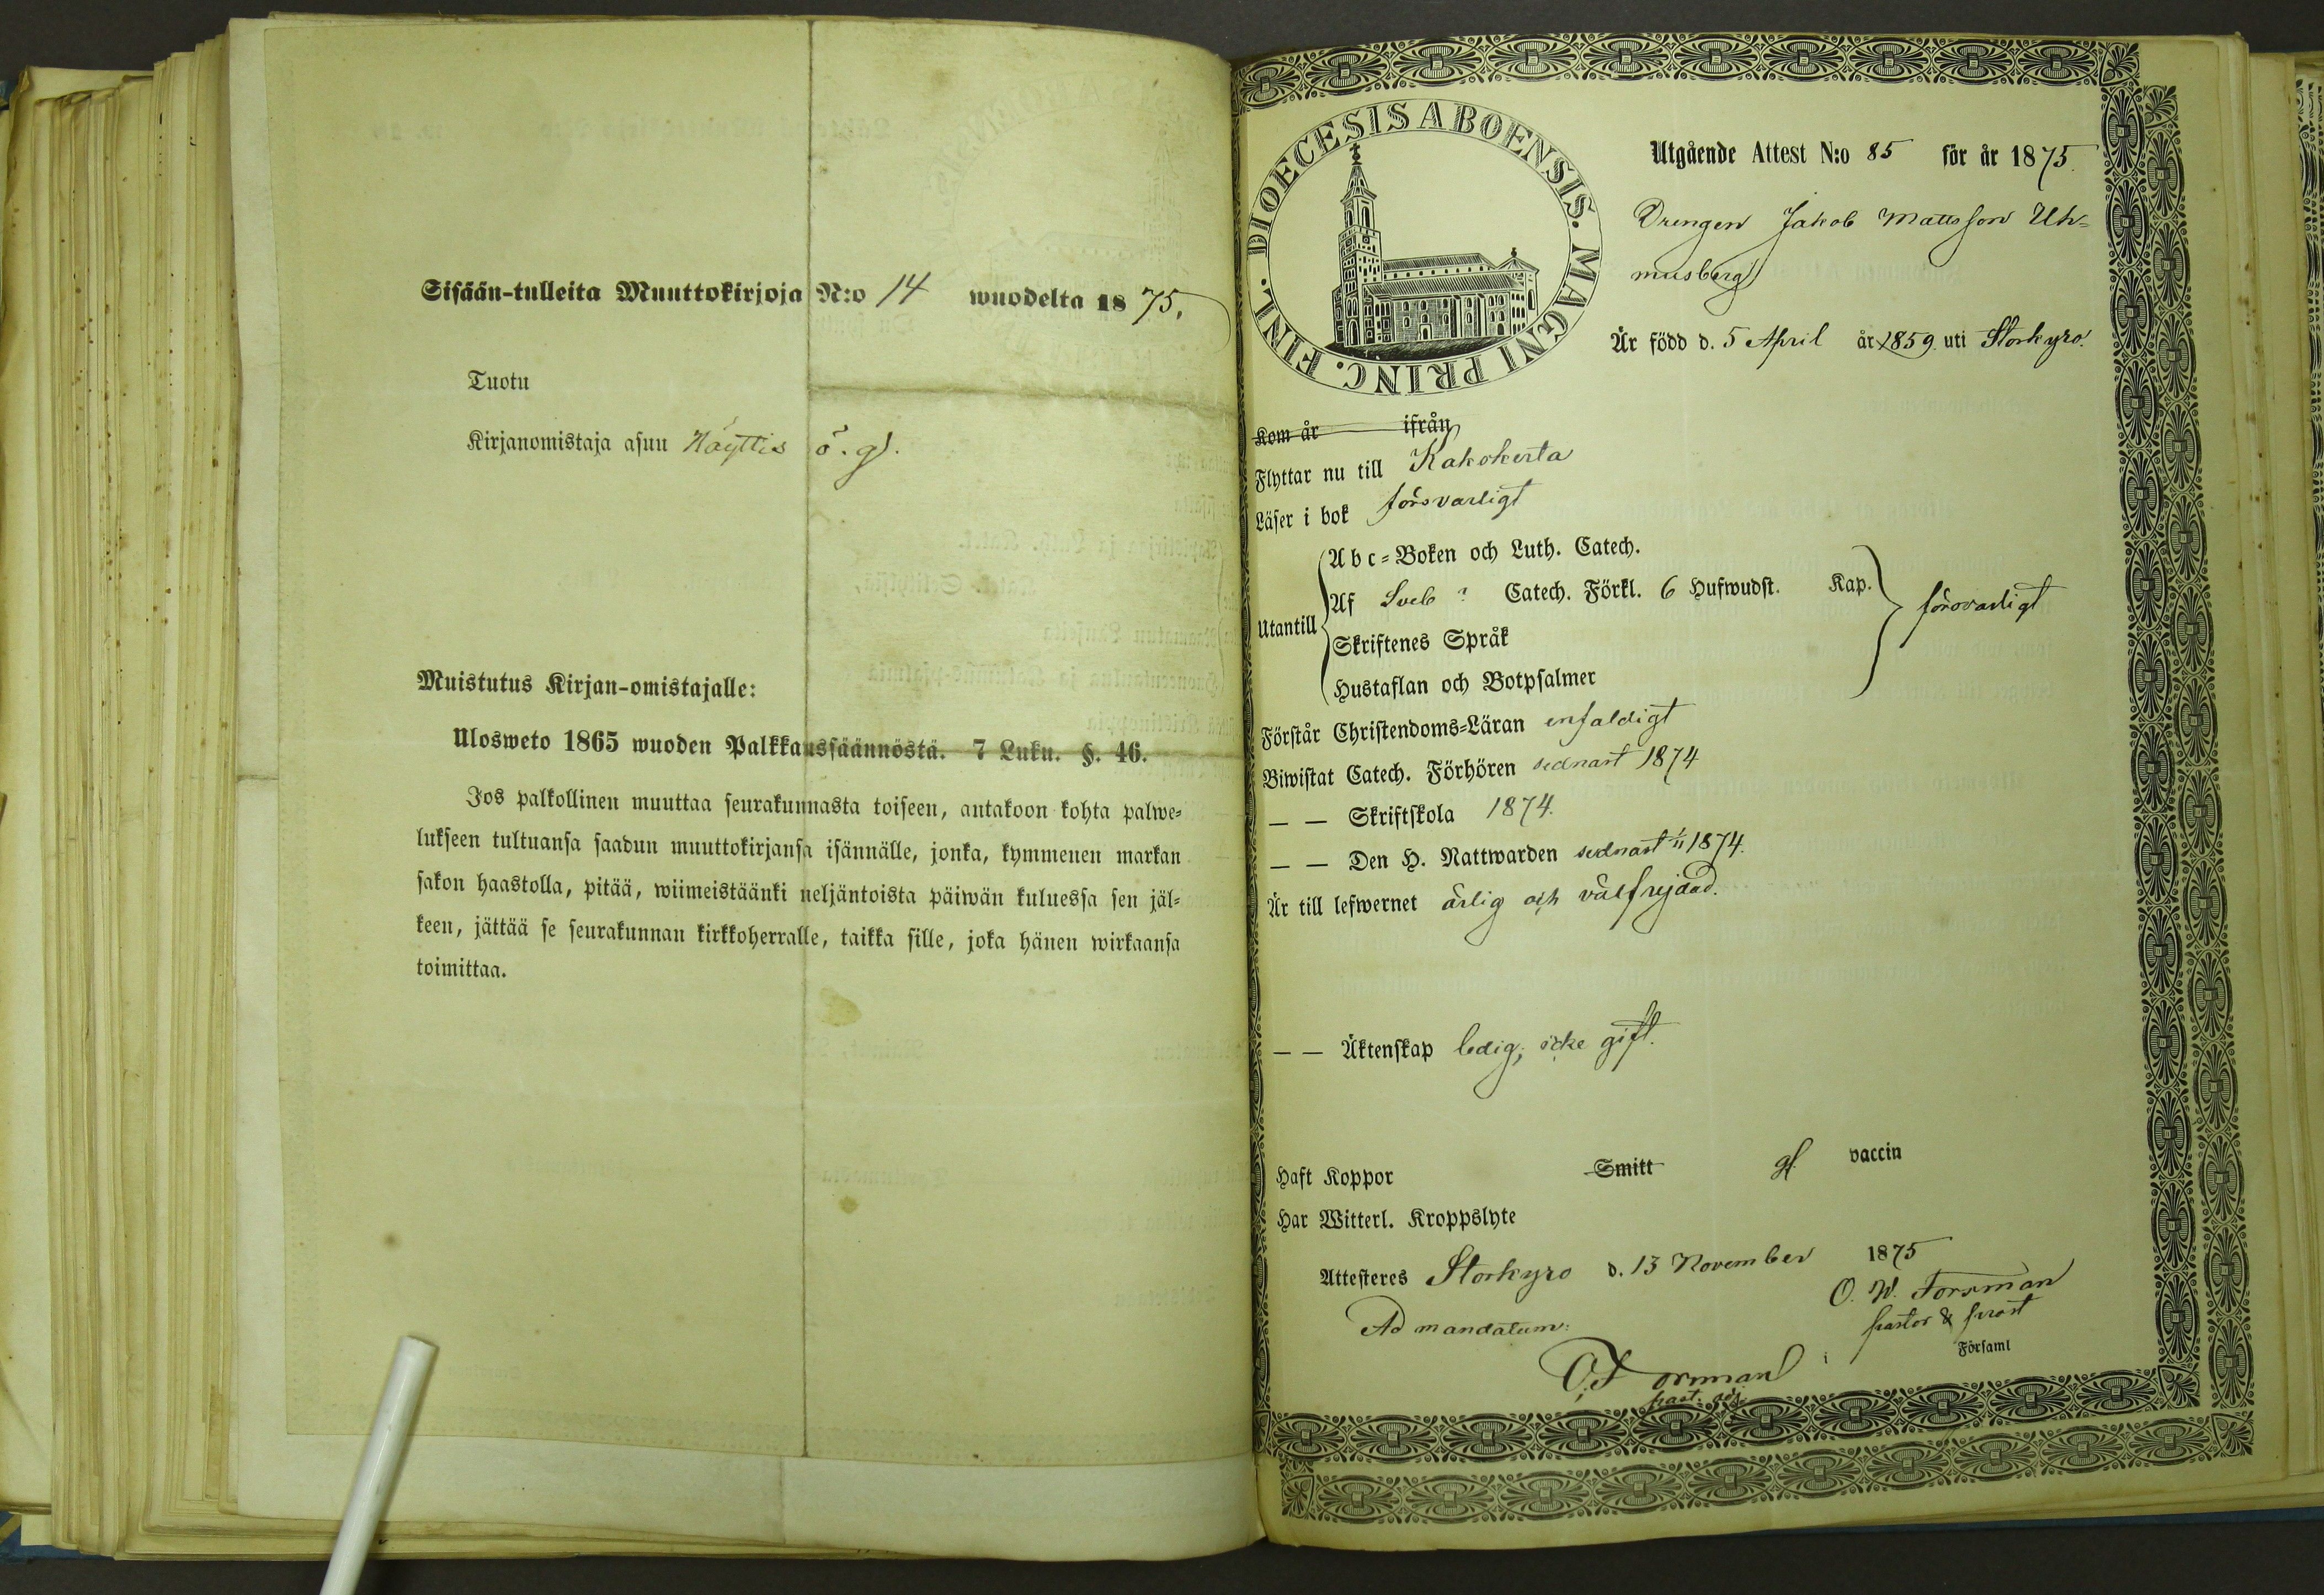 Sisään-tulleita Muuttokirjoja N:o 14 wuodelta 1875.
Tuotu
Kirjanomistaja asuu Näyttis ö. g).
Muistutus Kirjan-omistajalle:
Ulosweto 1865 wuoden Palkkaussäännöstä. 7 Luku. §. 46.
Jos palkollinen muuttaa seurakunnasta toiseen, antakoon kohta palwe-
lukseen tultuansa saadun muuttokirjansa isännälle, jonka, kymmenen markan
sakon haastolla, pitää, wiimeistäänki neljäntoista päiwän kuluessa sen jäl-
keen, jättää se seurakunnan kirkkoherralle, taikka sille, joka hänen wirkaansa
toimittaa.
DIOECESIS ABOENSIS. MAGNI PRINC. FINL.
Utgående Attest N:o 85 för år 1875.
Drengen Jakob Mattsson Uh-
musberg
Är född d. 5 April år 1859. uti Storkyro.
Kom år ifrån
Flyttar nu till Kakskerta
Läser i bok försvarligt
Utantill
Abc-Boken och Luth. Catech.
Af Sveb: Catech. Förkl. 6 Hufwudst. Kap.
Skriftenes Språk
Hustaflan och Botpsalmer
försvarligt
Förstår Christendoms-Läran enfaldigt
Biwistat Catech. Förhören sednast 1874
— — Skriftskola 1874.
— — Den H. Nattwarden sednast 1/11 1874.
Är till lefwernet ärlig och välfrejdad.
— — Äktenskap ledig; icke gift.
Haft Koppor Smitt gf. vaccin
Har Witterl. Kroppslyte
Attesteres Storkyro d. 13 November 1875
O. W. Forsman
pastor & prost
Ad mandatum:
i Församl
O. Forsman
past. adj.